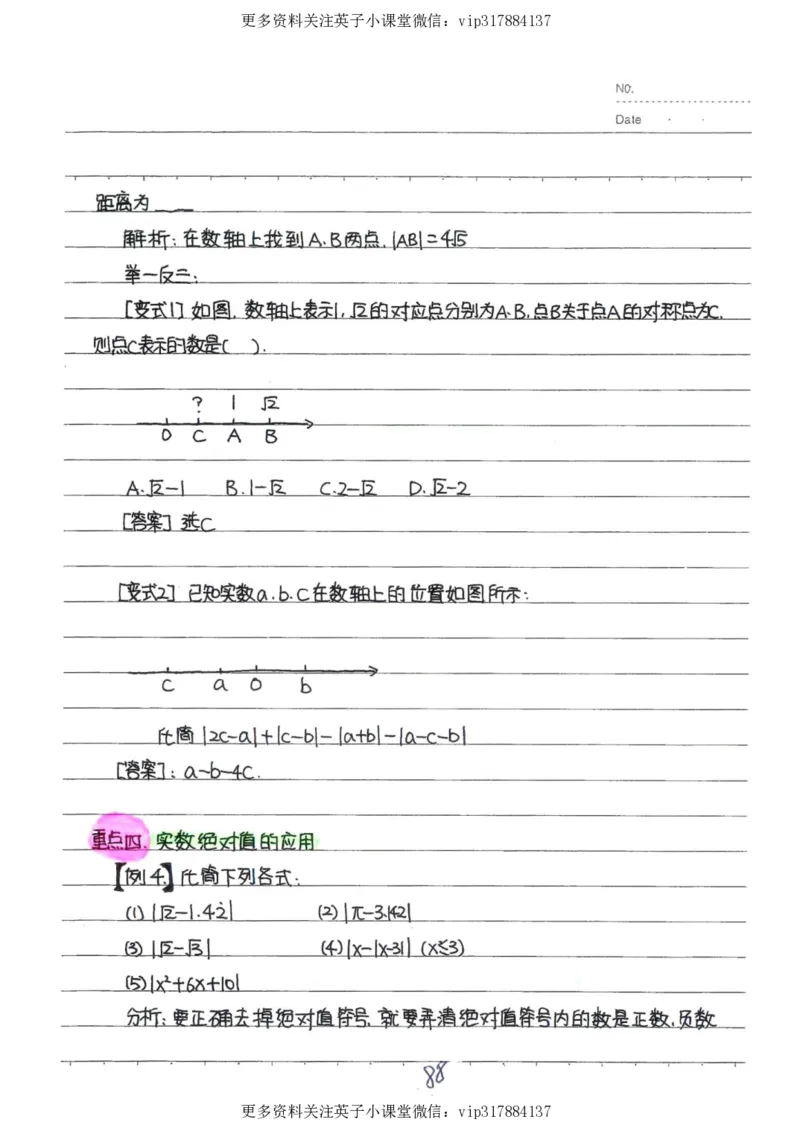 更多资料关注英子小课堂微信：vip317884137
No.
Date
距离为____
解析：在数轴上找到A、B两点，|AB|=4√5
举一反三：
[变式1] 如图，数轴上表示1，√2的对应点分别为A、B，点B关于点A的对称点为C，
则点C表示的数是(  ).
? 1 √2
0 C A B
A.√2-1 B.1-√2 C.2-√2 D.√2-2
[答案] 选C
[变式2] 已知实数a、b、c在数轴上的位置如图所示：
c a 0 b
化简 |2c-a|+|c-b|-|a+b|-|a-c-b|
[答案]：a-b-4c.
重点四. 实数绝对值的应用
【例4.】化简下列各式：
(1) |√2-1.42| (2) |π-3.142|
(3) |√2-√3| (4) |x-|x-3|| (x≤3)
(5) |x²+6x+10|
分析：要正确去掉绝对值符号，就要弄清绝对值符号内的数是正数、负数
88
更多资料关注英子小课堂微信：vip317884137